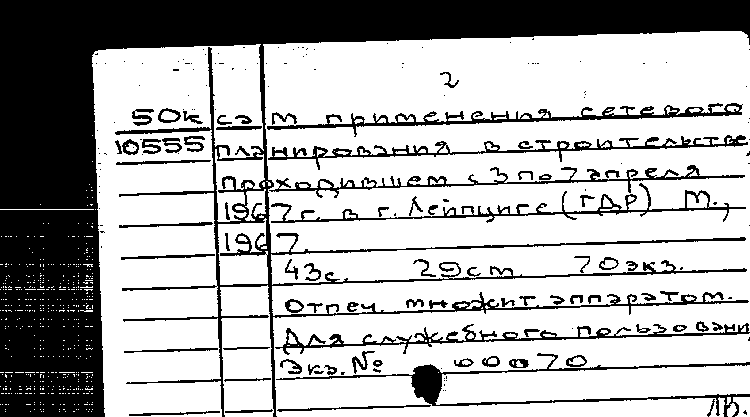 2
50к сэ м применения сетевого
10555 планирования в строительстве,
проходившем с 3 по 7 апреля
1967 г. в г. Лейпциге (ГДР) М.,
1967.
43с. 29см. 70экз.
Отпеч. множит. аппаратом.
Для служебного пользовани
Экз. № 00070.